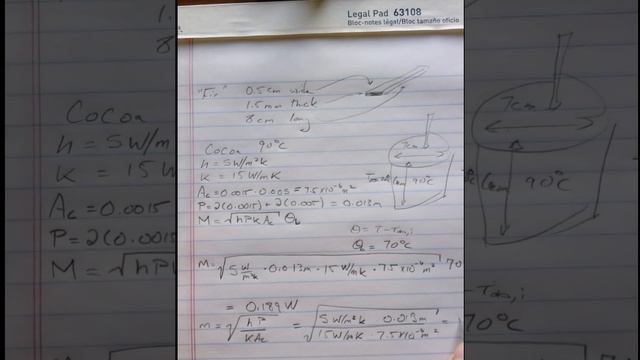 Legal Pad 63108
Bloc-notes légal/Bloc tamaño oficio
"Fin" 0.5cm wide
1.5mm thick
8cm long
Cocoa 90°C
h = 5W/m²K
K = 15 W/mK
Ac = 0.0015 · 0.005 = 7.5×10⁻⁶ m²
P = 2(0.0015) + 2(0.005) = 0.013m
M = √hPKAc θb
7cm
90°C
θ = T - T∞,i
θb = 70°C
M = √5 W/m²K · 0.013m · 15 W/mK · 7.5×10⁻⁶ m² 70
= 0.189 W
m = √hP/KAc = √5 W/m²K 0.013m / 15W/mK · 7.5×10⁻⁶m² =
Cocoa
h = 5W/m
K = 15 W
Ac = 0.0015
P = 2(0.0015
M = √hP
7cm
90°C
70°C